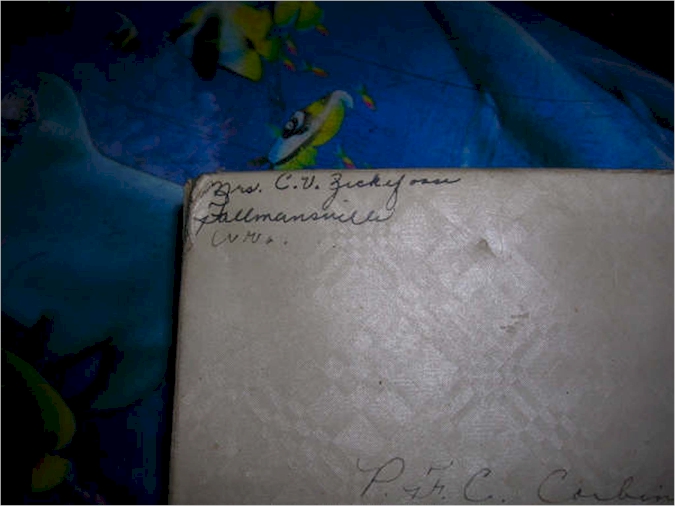 Mrs. C.V. Zickefoose
Tallmansville
W.Va.
P.F.C. Corbin